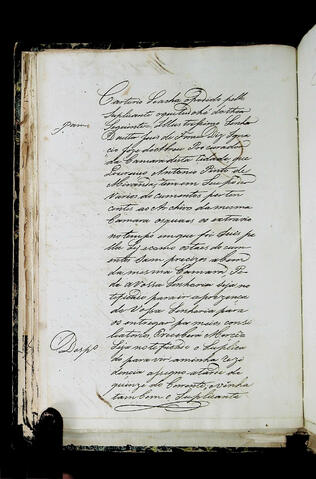 Cartorio Seacha opossido pello
Suplicante oqualtrascho do thior
Seguinte, Illustrissimo Senhor
pam. Doutor Juis de Fora Diz Igna
cio Jose de Abreu Procurador
da Camara desta Cidade que
Lourenço Antonio Pinto de
Miranda, tem em Seu poder
Varios documentos perten
centes ao Archivo da mesma
Camara os quaes os extravio
no tempo em que foi Juis pe
lla Ley e como os taes docum
entos Sam precizos abem
da mesma Camara. Pe
de a Vossa Senhoria seja no
teficado para vir a prezença
de Vossa Senhoria para
os entregar pa meios consi
liatorios, E Recebera Merce
Desp.o Seja noteficado o Suplica
do para vir aminha rezi
dencia apregoatarde de
quinze do Corrente, e venha
tambem o Suplicante